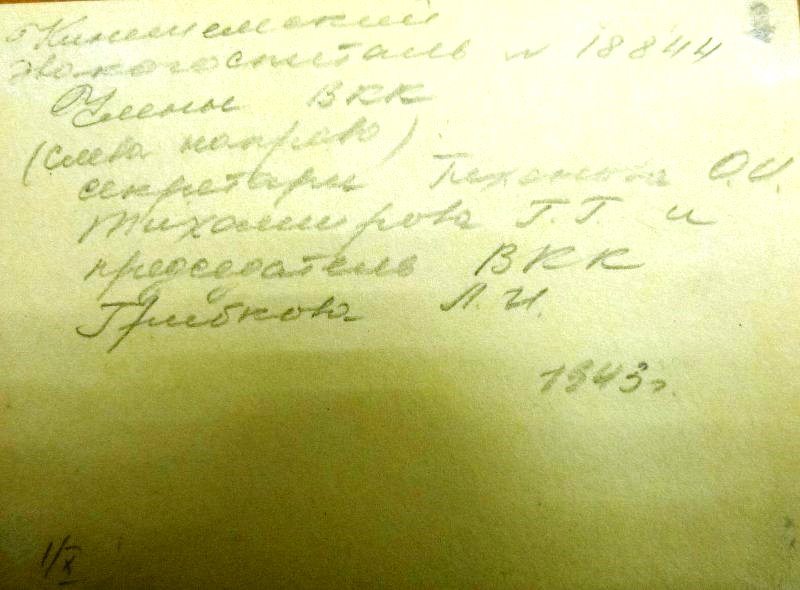 Кинешемский
эвакогоспиталь N 18844
Члены ВКК
(слева направо)
секретарь Тихонова О.И.
Тихомирова Г.Г. и
председатель ВКК
Грибкова Л.И.
1943г.
1/X